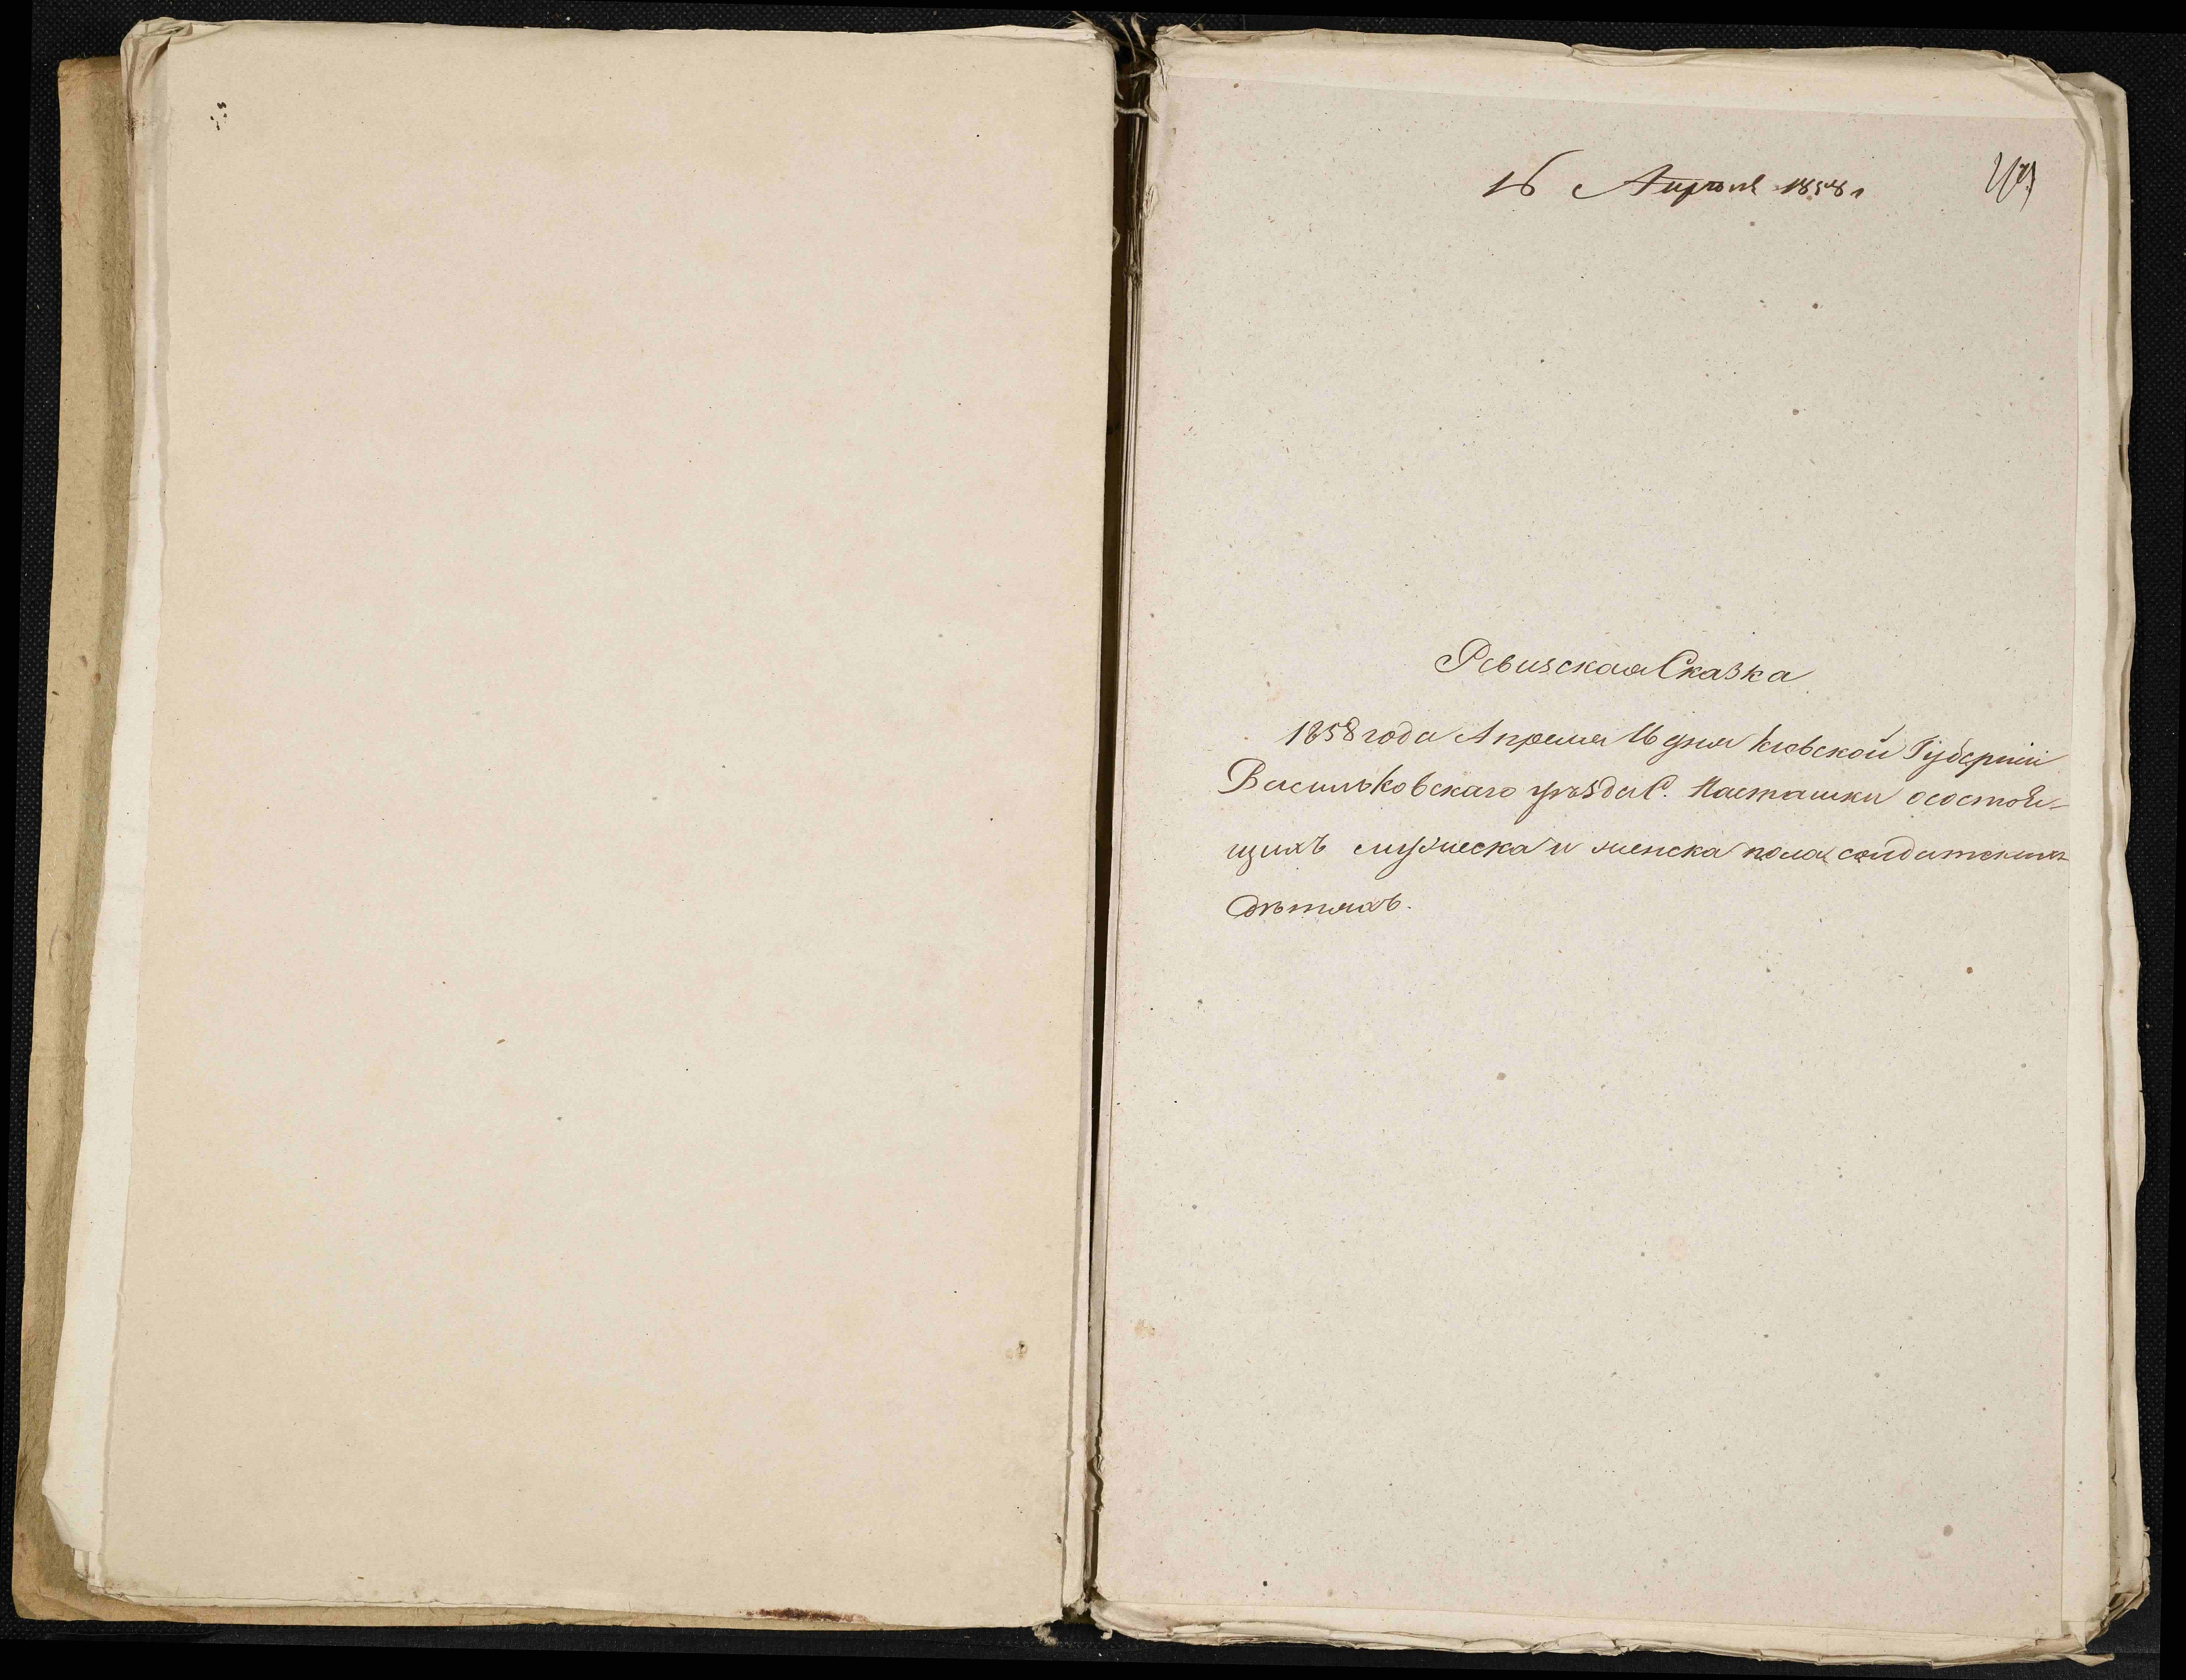 16 Апрѣля 1858 г
Ревизская Сказка
1858 года Апреля 16 дня Киевской Губерніи
Васильковскаго уѣзда С. Насташки осостоя-
щихъ мужеска и женска пола солдатскихъ
дѣтяхъ.